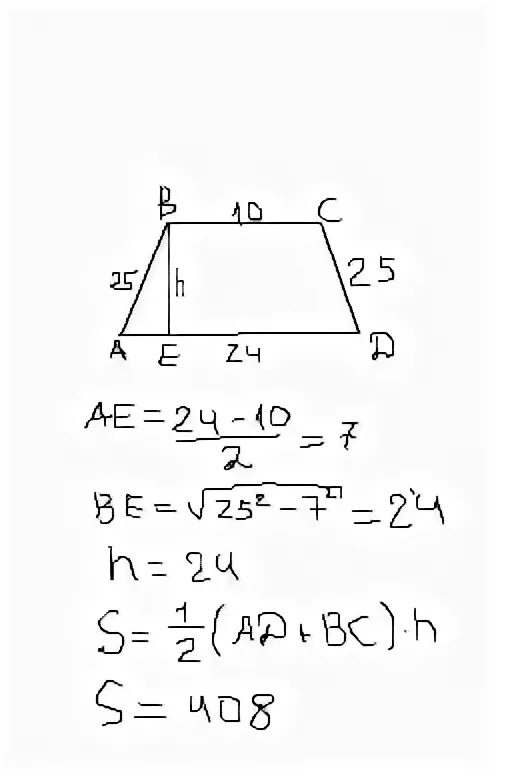 B 10 C
25 h 25
A E 24 D
AE = 24 - 10 / 2 = 7
BE = √25² - 7² = 24
h = 24
S = 1/2 (AD + BC) · h
S = 408